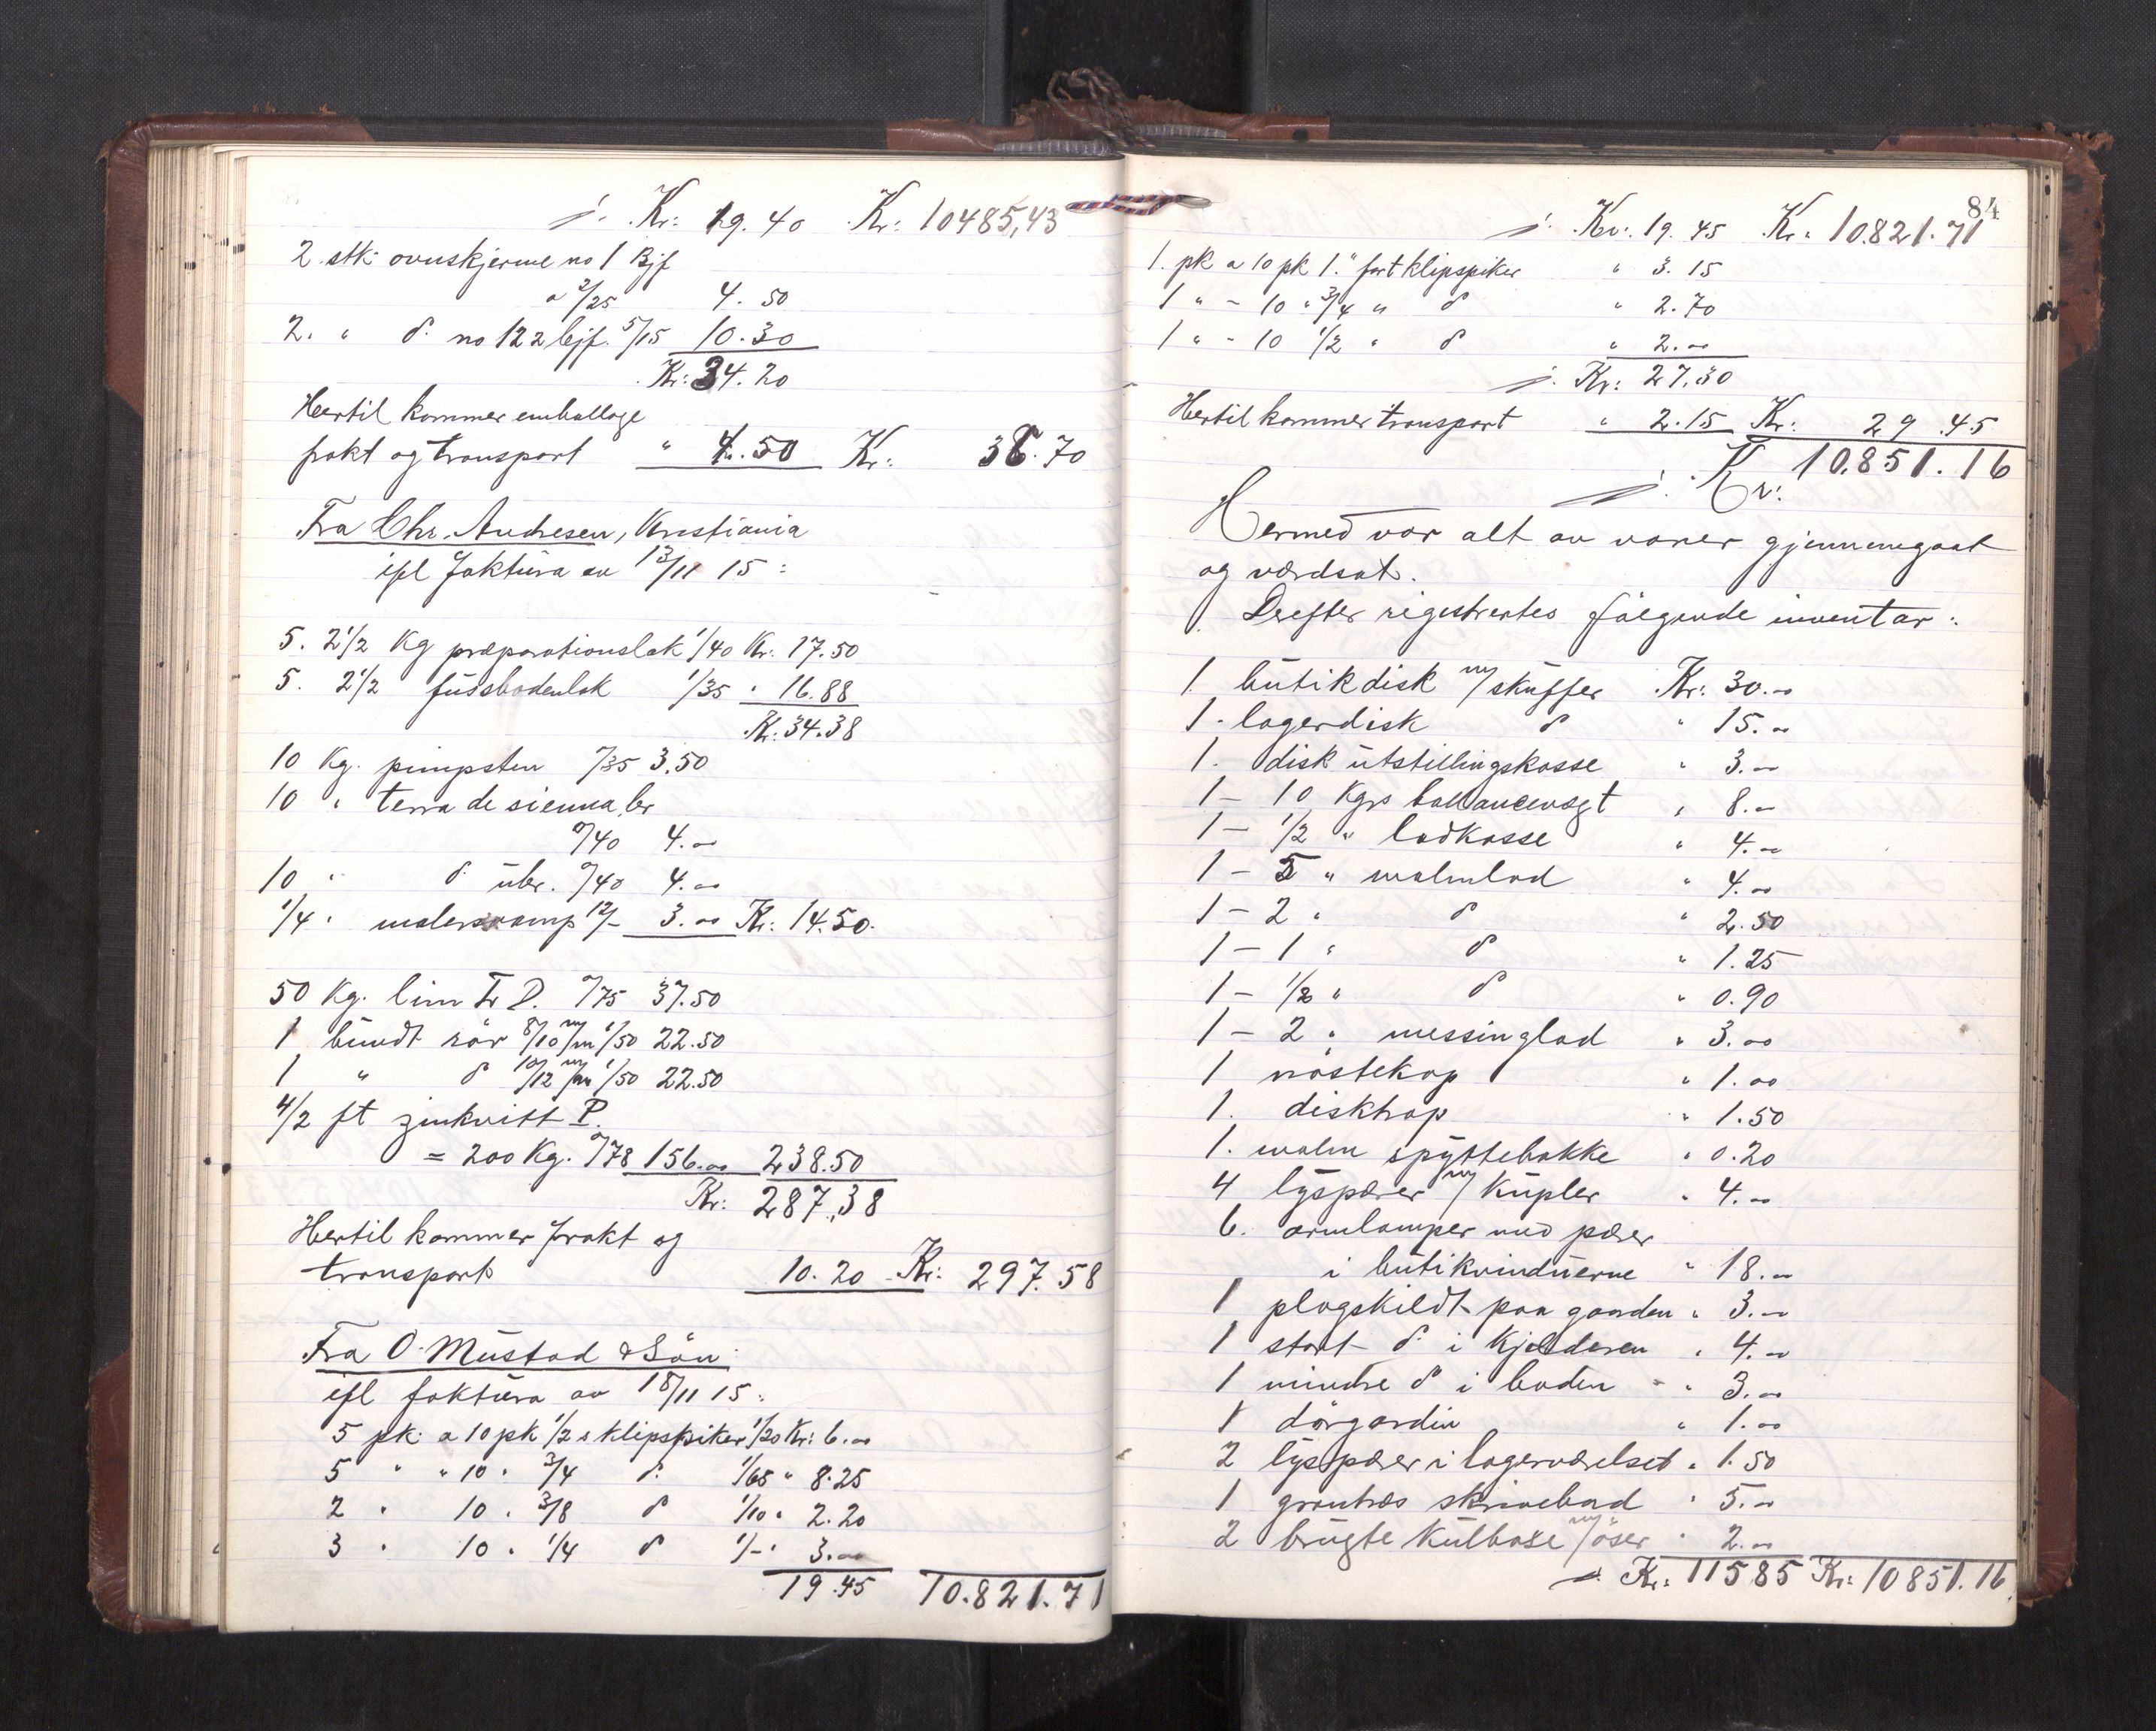 ÷ Kr: 19.40 Kr: 10485,43
2 stk. ovnskjerme no 1 Bjf
a 2/25 4.50
2. " do no 122 bjf. 5/15 10.30
Kr: 34.20
Hertil kommer emballage
frakt og transport " 4.50 Kr: 38.70
Fra Chr. Andresen, Kristiania
ifl faktura av 13/11 15:
5. 2 1/2 Kg præparationslak 1/40 Kr. 17.50
5. 2 1/2 fussbodenlak 1/35 " 16.88
Kr. 34.38
10 Kg. pimpsten 0/35 3.50
10 " terra de sienna br
0/40 4.00
10 " do übr. 0/40 4.00
1/4 " malersvamp 12/- 3.00 Kr: 14.50.
50 Kg. lim Fr D. 0/75 37.50
1 bundt rör 8/10 m/m 1/50 22.50
1 " do 10/12 m/m 1/50 22.50
4/2 ft zinkvitt P.
= 200 Kg. 0/78 156.00 238.50
Kr: 287,38
Hertil kommer frakt og
transport 10.20 Kr: 297.58
Fra O. Mustad & Sön
ifl faktura av 18/11 15:
5 pk. a 10 pk 1/2 s klipspiker 1/20 Kr: 6.00
5 " " 10 " 3/4 do 1/65 " 8.25
2 " 10 " 3/8 do 1/10 " 2.20
3 " 10 " 1/4 do 1/- " 3.00
19.45 10.821.71
84
÷ Kr: 19.45 Kr: 10.821.71
1. pk a 10 pk 1." fort klipspiker " 3.15
1 " - 10 " 3/4 " do " 2.70
1 " - 10 1/2 " do " 2.00
÷ Kr: 27.30
Hertil kommer transport " 2.15 Kr: 29.45
÷ Kr: 10.851.16
Hermed var alt av varer gjennemgaat
og værdsat.
Derefter registrertes følgende inventar:
1. butikdisk m/skuffer Kr: 30.00
1. lagerdisk do " 15.00
1. disk utstillingskasse " 3.00
1 - 10 Kgrs ballancevægt " 8.00
1 - 1/2 " lodkasse " 4.00
1 - 5 " malmlod " 4.00
1 - 2 " do " 2.50
1 - 1 " do " 1.25
1 - 1/2 " do " 0.90
1 - 2 " messinglod " 3.00
1 nöstekop " 1.00
1. disktrap " 1.50
1. malm spyttebakke " 0.20
4 lyspærer m/kupler " 4.00
6. armlamper med pærer
i butikvinduerne " 18.00
1 plagskildt paa gaarden " 3.00
1 stort do i kjelderen " 4.00
1 mindre do i boden " 3.00
1 dörgardin " 1.00
2 lyspærer i lagerværelset " 1.50
1 grantræs skrivebord " 5.00
2 brugte kulbokse m/öser " 2.00
÷ Kr: 115 85 Kr: 10851.16